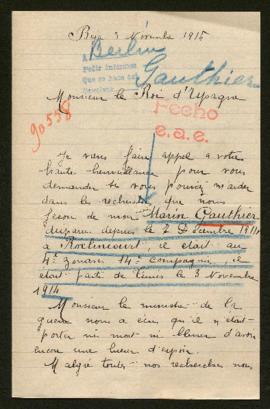 3 Novembre 1915
A Berlin
Pedir informes
Que se hace así
Gauthier
Monsieur le Roi d'Espagne
Hecho
e.a.e.
90558
Je viens faire appel a votre
haute bienveillance pour vous
demander si vous pouviez m'aider
dans les recherches que nous
fesons de mon Marin Gauthier
disparu depuis le 7 Décembre 1914
a , il etait au
4e Zouave 14e compagnie, il
etait parti de Tunis le 3 Novembre
1914
Monsieur le ministre de la
guerre nous a ecrit qu'il n'etait
porter ni mort ni blesser d'avoir
encore une lueur d'espoir.
Malgré toutes nos recherches nous